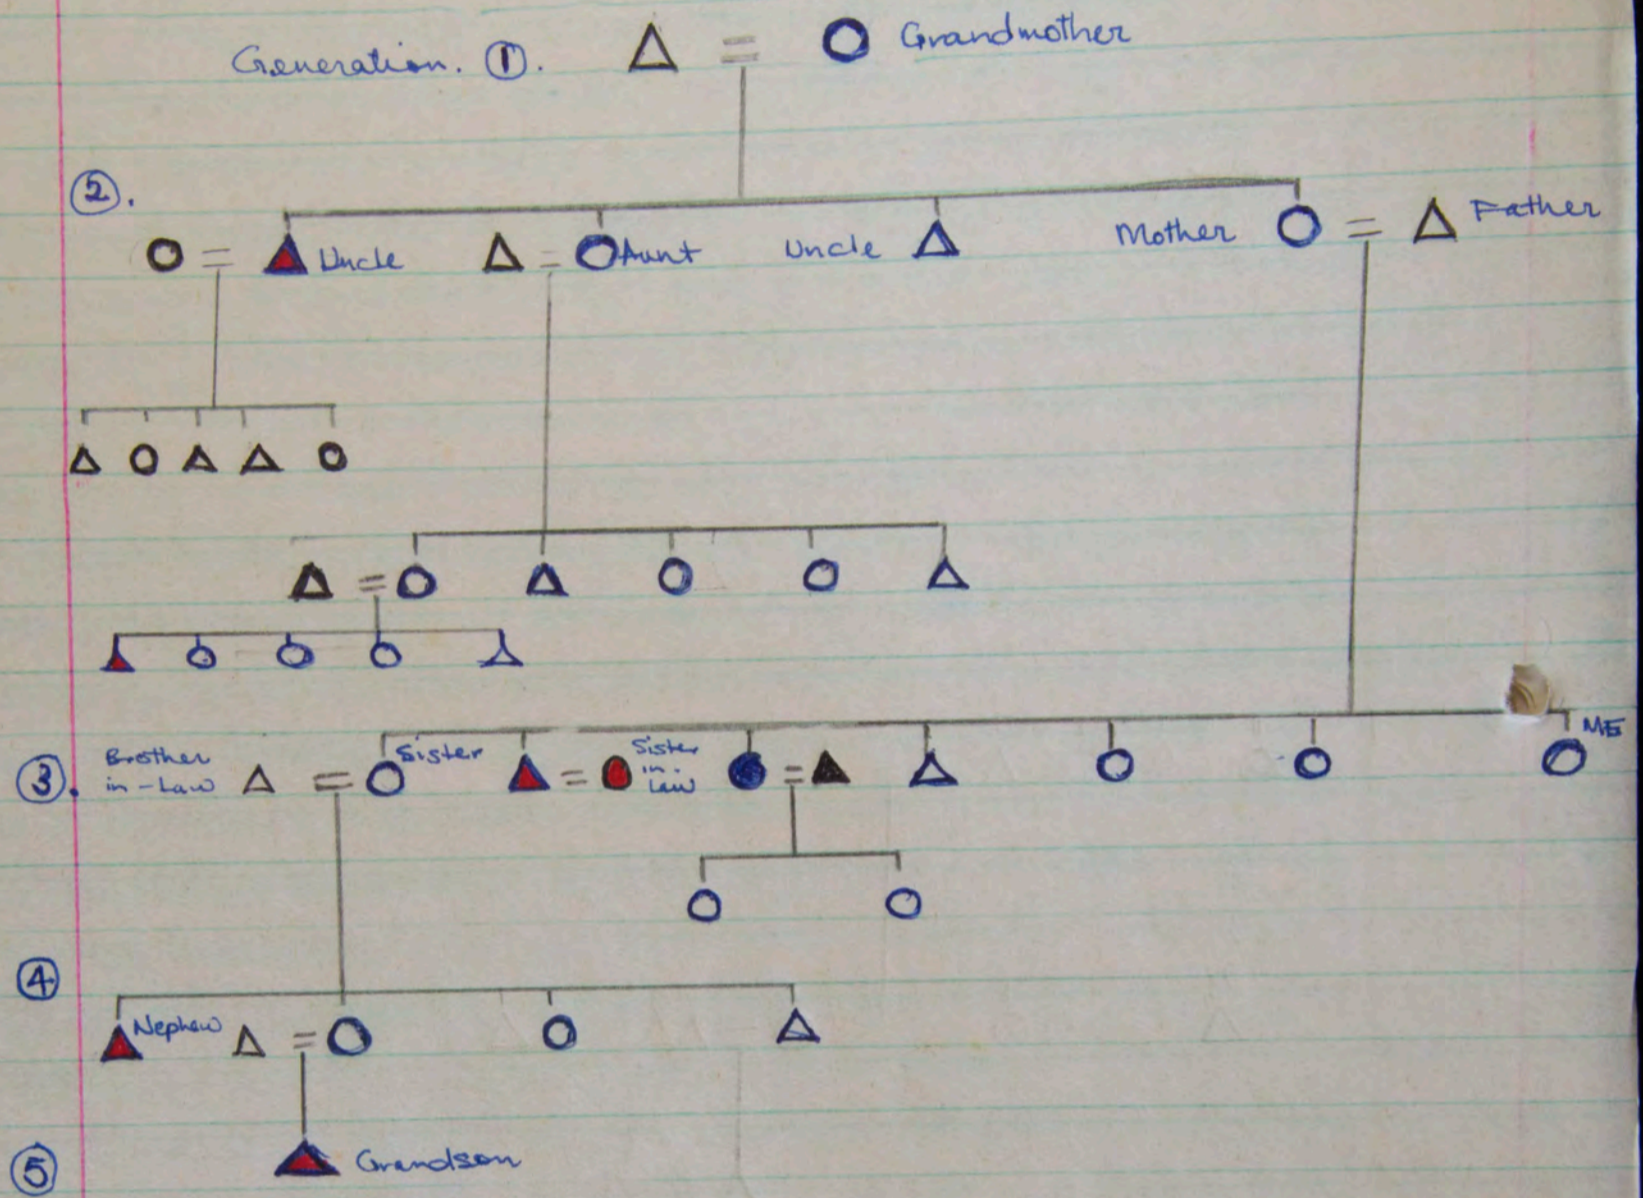 Generation. ①.
Grandmother
②.
Uncle
Aunt
Uncle
Mother
Father
③.
Brother
in-Law
Sister
Sister
in-
Law
ME
④
Nephew
⑤
Grandson